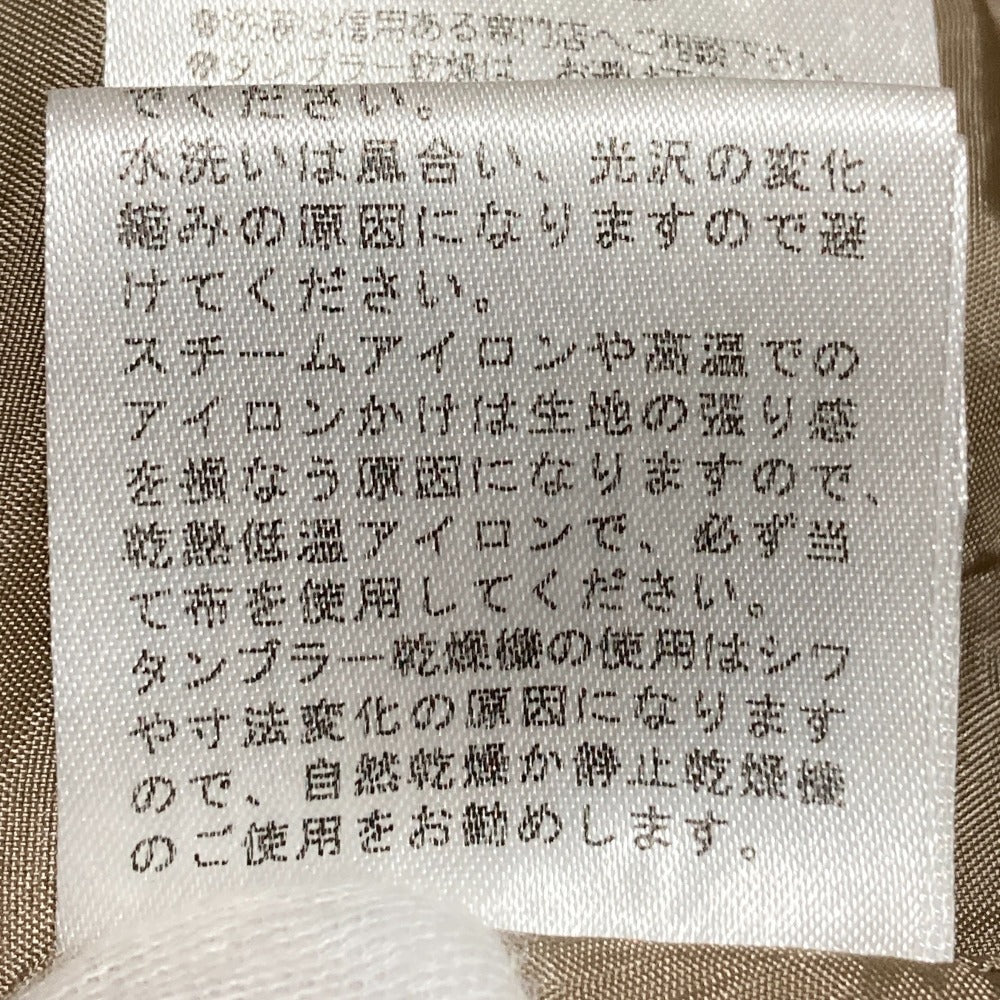 ●洗濯は信用ある専門店へご相談下さい。
●タンブラー乾燥は、お避け下
でください。
水洗いは風合い、光沢の変化、
縮みの原因になりますので避
けてください。
スチームアイロンや高温での
アイロンかけは生地の張り感
を損なう原因になりますので、
乾熱低温アイロンで、必ず当
て布を使用してください。
タンブラー乾燥機の使用はシワ
や寸法変化の原因になります
ので、自然乾燥か静止乾燥機
のご使用をお勧めします。